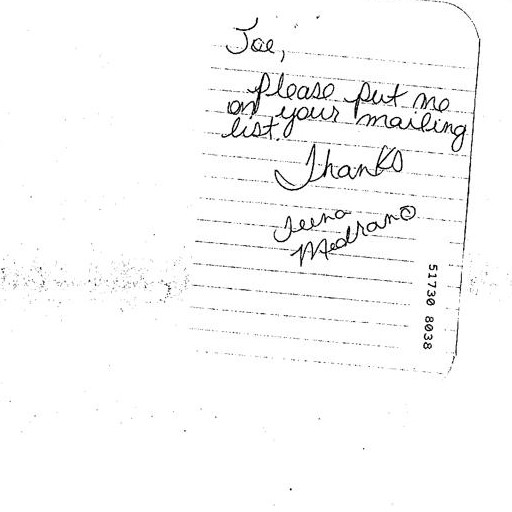 Joe,
please put me
on your mailing
list.
Thanks
Teena
Medrano
51730 8038